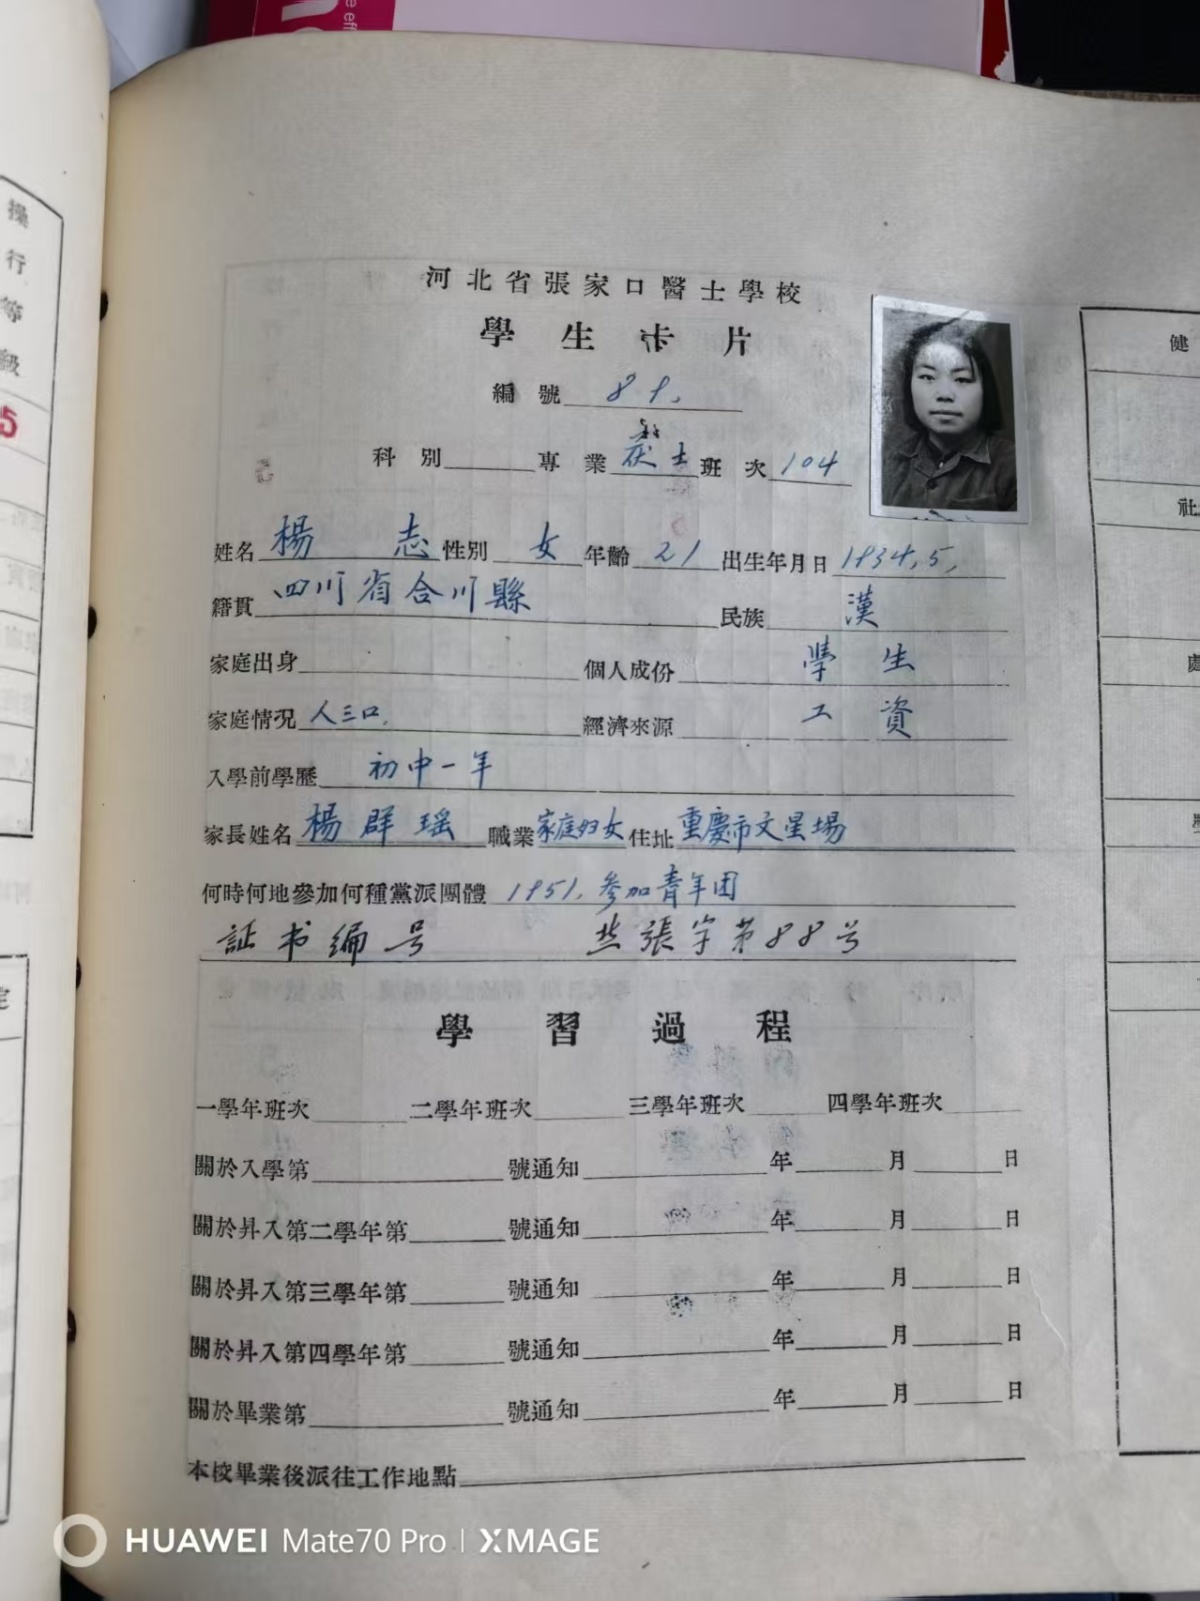 操
行
等
級
5
定
河北省張家口醫士學校
學生卡片
編號 81.
科別 專業 士 班次 104
姓名 楊志 性別 女 年齡 21 出生年月日 1934.5.
籍貫 四川省合川縣 民族 漢
家庭出身 個人成份 學生
家庭情況 人三口. 經濟來源 工資
入學前學歷 初中一年
家長姓名 楊群瑶 職業 家庭妇女 住址 重慶市文星場
何時何地參加何種黨派團體 1951.参加青年团
証书编号 張字第88号
學習過程
一學年班次 二學年班次 三學年班次 四學年班次
關於入學第 號通知 年 月 日
關於昇入第二學年第 號通知 年 月 日
關於昇入第三學年第 號通知 年 月 日
關於昇入第四學年第 號通知 年 月 日
關於畢業第 號通知 年 月 日
本校畢業後派往工作地點
健
社
處
HUAWEI Mate70 Pro | XMAGE